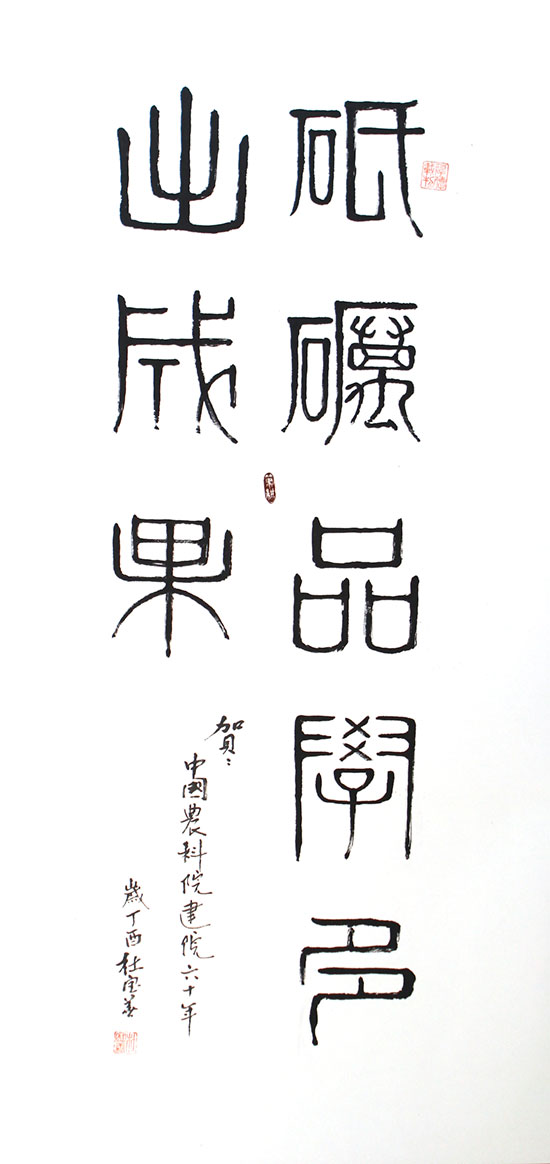 砥礪品學多
出成果
賀：
中國農科院建院六十年
歲丁酉杜宝善